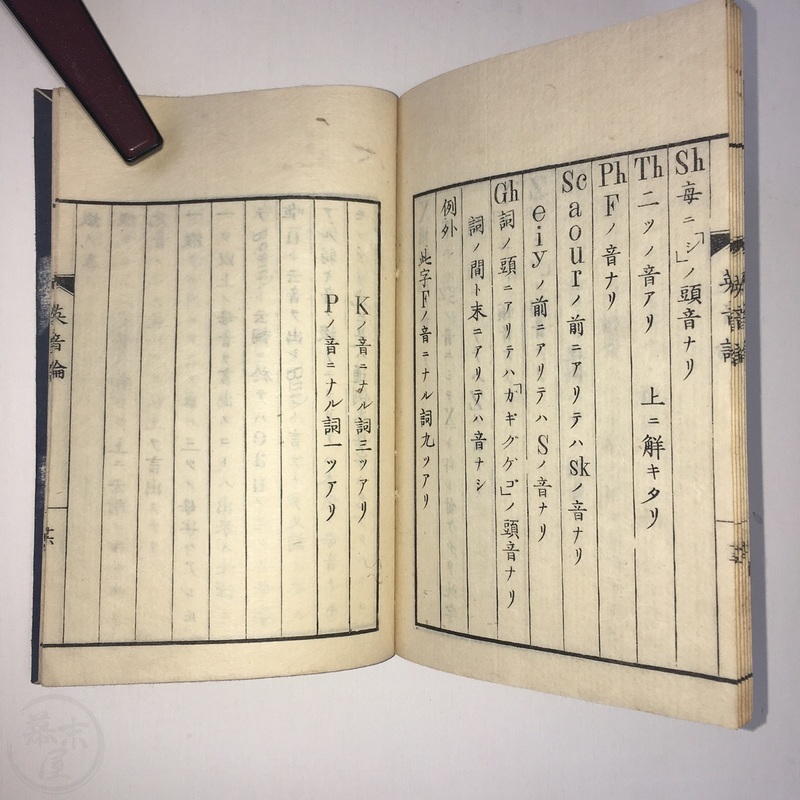 Sh 毎ニ「シ」ノ頭音ナリ
Th 二ツノ音アリ 上ニ解キタリ
Ph Fノ音ナリ
Sc aourノ前ニアリテハskノ音ナリ
eiyノ前ニアリテハSノ音ナリ
Gh 詞ノ頭ニアリテハ「ガギグゲゴ」ノ頭音ナリ
詞ノ間ト末ニアリテハ音ナシ
例外 此字Fノ音ニナル詞九ツアリ
Kノ音ニナル詞三ツアリ
Pノ音ニナル詞一ツアリ
英音論
幕末屋